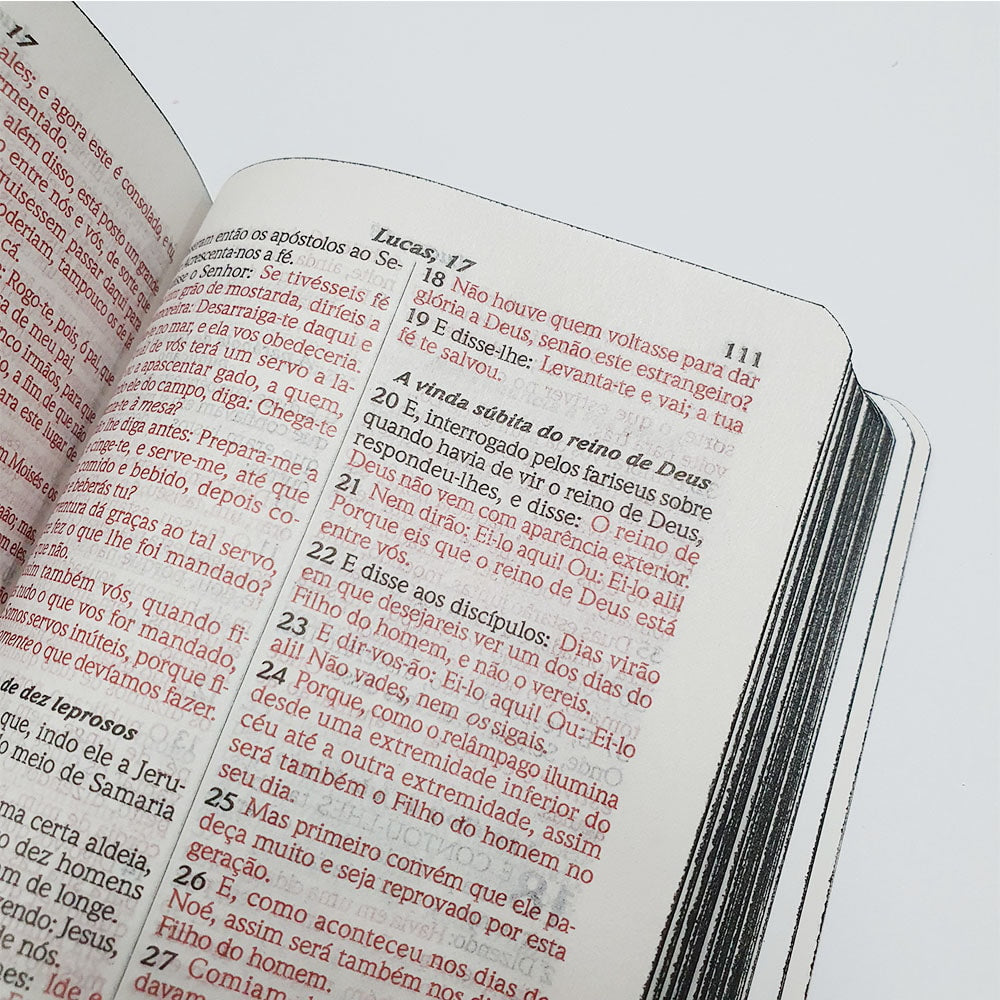 17
ales; e agora este é consolado, e tu
ormentado.
além disso, está posto um grande
o entre nós e vós, de sorte que
quisessem passar daqui para
poderiam, tampouco os de
cá.
Rogo-te, pois, ó pai, que
a de meu pai,
nco irmãos, para
o, a fim de que não
ara este lugar de
m Moisés e os
Lucas, 17
111
então os apóstolos ao Se-
Acrescenta-nos a fé.
sse o Senhor: Se tivésseis fé
um grão de mostarda, diríeis a
moreira: Desarraiga-te daqui e
te no mar, e ela vos obedeceria.
de vós terá um servo a la-
a apascentar gado, a quem,
ele do campo, diga: Chega-te
e-te à mesa?
lhe diga antes: Prepara-me a
e cinge-te, e serve-me, até que
comido e bebido, depois co-
e beberás tu?
ventura dá graças ao tal servo,
e fez o que lhe foi mandado?
e não.
ssim também vós, quando fi-
tudo o que vos for mandado,
Somos servos inúteis, porque fi-
somente o que devíamos fazer.
de dez leprosos
que, indo ele a Jeru-
o meio de Samaria
ma certa aldeia,
o dez homens
am de longe.
zendo: Jesus,
de nós.
hes: Ide e
18 Não houve quem voltasse para dar
glória a Deus, senão este estrangeiro?
19 E disse-lhe: Levanta-te e vai; a tua
fé te salvou.
A vinda súbita do reino de Deus
20 E, interrogado pelos fariseus sobre
quando havia de vir o reino de Deus,
respondeu-lhes, e disse: O reino de
Deus não vem com aparência exterior.
21 Nem dirão: Ei-lo aqui! Ou: Ei-lo ali!
Porque eis que o reino de Deus está
entre vós.
22 E disse aos discípulos: Dias virão
em que desejareis ver um dos dias do
Filho do homem, e não o vereis.
23 E dir-vos-ão: Ei-lo aqui! Ou: Ei-lo
ali! Não vades, nem os sigais,
24 Porque, como o relâmpago ilumina
desde uma extremidade inferior do
céu até a outra extremidade, assim
será também o Filho do homem no
seu dia.
25 Mas primeiro convém que ele pa-
deça muito e seja reprovado por esta
geração.
26 E, como aconteceu nos dias de
Noé, assim será também nos dias do
Filho do homem.
27 Comiam,
davam